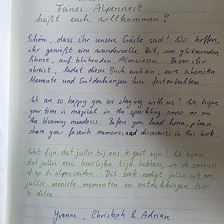 Feines Alpennest
heißt euch willkommen!
Schön, dass ihr unsere Gäste seid! Wir hoffen,
ihr genießt eine wundervolle Zeit, im glitzernden
Schnee, auf blühenden Almwiesen. Bevor ihr
abreist, ladet dieses Buch euch ein, eure schönsten
Momente und Entdeckungen hier festzuhalten.
We are so happy you are staying with us! We hope
your time is magical in the sparkling snow or on
the blooming meadows. Before you head home, please
share your favorite memories and discoveries in this book.
Wat fijn dat jullie bij ons te gast zijn. We hopen
dat jullie een heerlijke tijd hebben, in de sneeuw
of op de alpenweiden. Dit boek nodigt jullie uit om
jullie mooiste momenten en ontdekkingen hier
te delen.
Yvonne, Christoph & Adrian